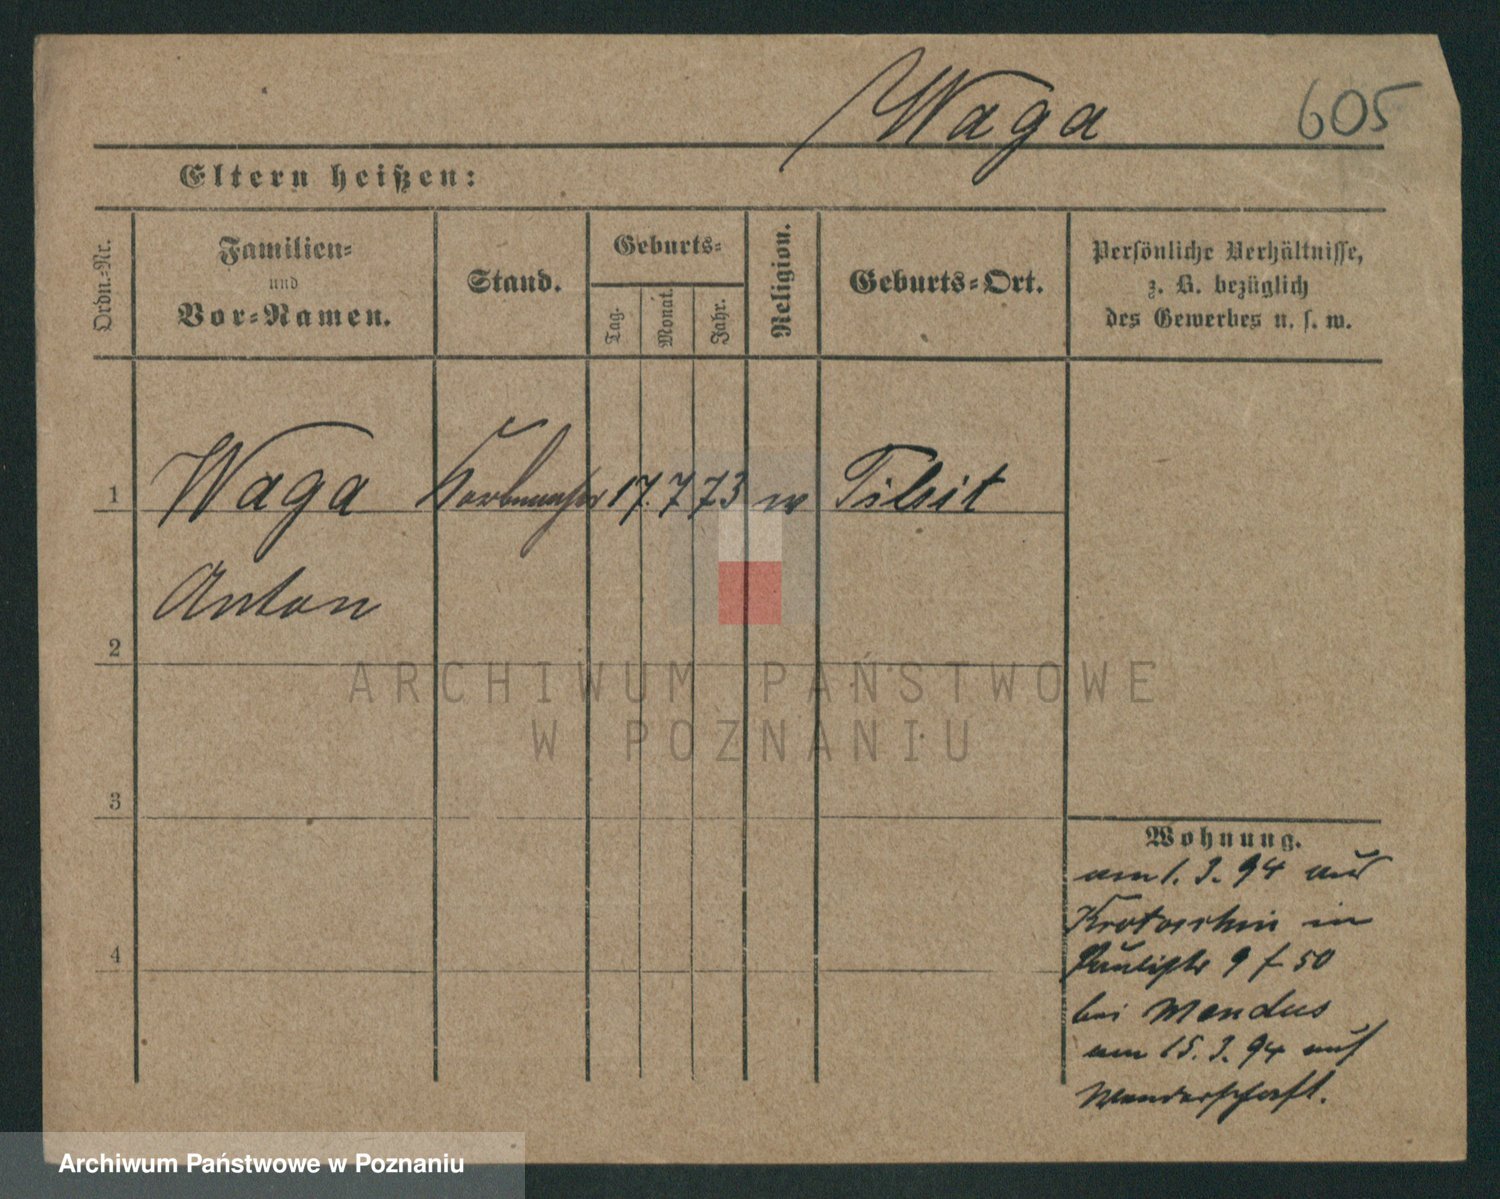 Waga 605
Eltern heißen:
Ordn.-Nr.
Familien-
und
Vor-Namen.
Stand.
Geburts-
Tag.
Monat.
Jahr.
Religion.
Geburts-Ort.
Persönliche Verhältnisse,
z. B. bezüglich
des Gewerbes u. s. w.
1 Waga Korbmacher 17. 7 73 Tilsit
Anton
2
3
4
Wohnung.
am 1. 3. 94 aus
Krotoschin in
9 f 50
bei Mandus
am 15. 3. 94 auf
Wanderschaft.
ARCHIWUM PAŃSTWOWE
W POZNANIU
Archiwum Państwowe w Poznaniu